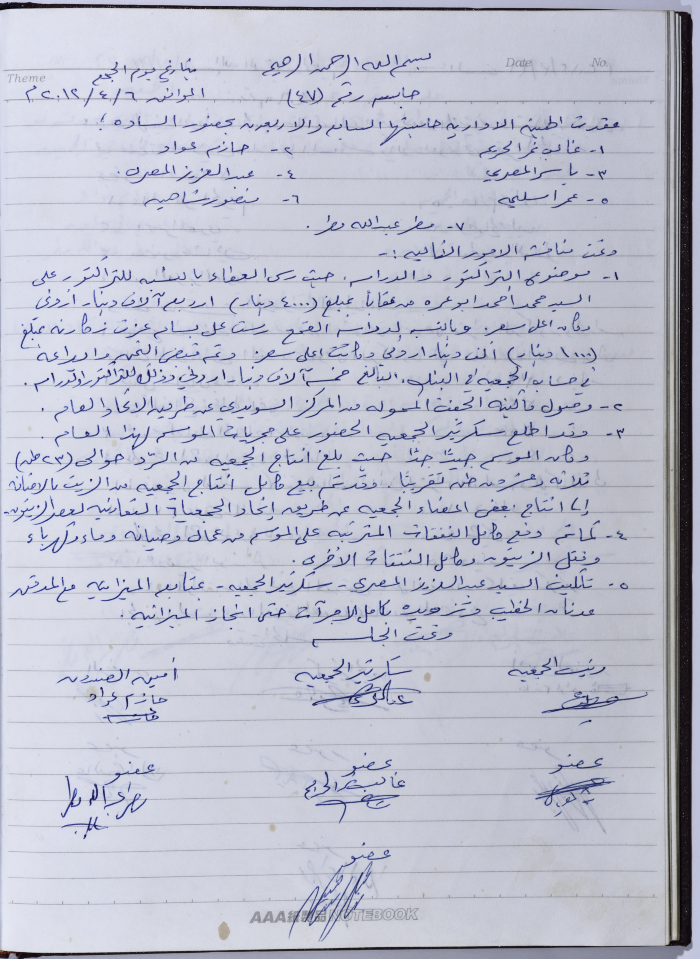 Theme Date No.
بسم الله الرحمن الرحيم بتاريخ يوم الجمعة
جلسه رقم (٤٧) الموافق ٢٠١٢/٤/٦م
عقدت الهيئة الاداريه جلستها السابعه والاربعون بحضور الساده:
١- غالب نمر ٢- حازم عواد
٣- ياسر المصري ٤- عبد العزيز المصري.
٥- عمر اسليم ٦- منصور شاهين
٧- مطر عبدالله مطر.
وتمت مناقشة الامور التاليه:-
١- موضوع التراكتور والدراسه. حيث رسى العطاء بالنسبه للتراكتور على
السيد محمد احمد ابو عمره من عقابا بمبلغ (٤٠٠٠ دينار) اربعة آلاف دينار اردني
وكان اعلى سعر. وبالنسبه لدراسة القمح رست على بسام عزت زكارنه بمبلغ
(١٠٠٠ دينار) الف دينار اردني وكانت اعلى سعر. وتم قبض الثمن وايداعه
في حساب الجمعيه في البنك. البالغ خمسة آلاف دينار اردني وذلك للتراكتور والدراسه.
٢- وصول ماكينة المموله من المركز السويدي عن طريق الاتحاد العام.
٣- وقد اطلع سكرتير الجمعيه الحضور على مجريات الموسم لهذا العام.
وكان الموسم جيدًا جدًا حيث بلغ انتاج الجمعيه من الرد حوالي (٢٣طن)
ثلاثه وعشرون طن تقريبًا. وقد تم بيع كامل انتاج الجمعيه من الزيت بالاضافه
إلى انتاج بعض اعضاء الجمعيه عن طريق إتحاد الجمعيات التعاونيه لعصر الزيتون.
٤- كما تم دفع كامل النفقات المترتبه على الموسم من عمال وصيانه وماء وكهرباء
ونقل الزيتون وكامل النفقات الأخرى.
٥- تكليف السيد عبد العزيز المصري - سكرتير الجمعيه - بمتابعة الميزانيه مع المدقق
عدنان الخطيب وتزويده بكامل الاجراءات حتى انجاز الميزانيه.
وتمت الجلسه
رئيس الجمعيه سكرتير الجمعيه أمين الصندوق
حازم عواد
عضو عضو عضو
غالب مطر عبدالله مطر
عضو
AAA NOTEBOOK